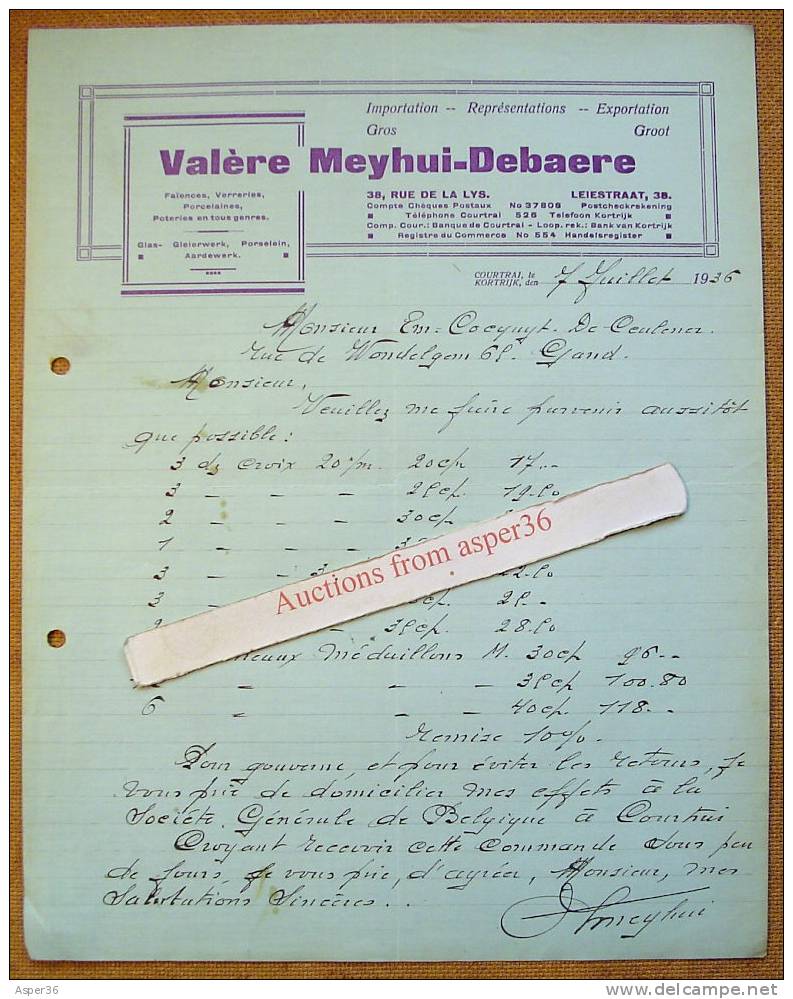 Importation -- Représentations -- Exportation
Gros Groot
Valère Meyhui-Debaere
Faïences, Verreries,
Porcelaines,
Poteries en tous genres.
Glas- Gleierwerk, Porselein,
Aardewerk.
38, RUE DE LA LYS. LEIESTRAAT, 38.
Compte Chèques Postaux No 37806 Postcheckrekening
Téléphone Courtrai 526 Telefoon Kortrijk
Comp. Cour.: Banque de Courtrai - Loop. rek.: Bank van Kortrijk
Registre du Commerce No 554 Handelsregister
COURTRAI, le
KORTRIJK, den 7 Juillet 1936
Monsieur Em. Cocquyt-De Ceulener.
rue de Wondelgem 65. Gand.
Monsieur,
Veuillez me faire parvenir aussitôt
que possible:
3 dz croix 20 cp. 17.-
3 - - - 25 cp. 19.50
2 - - - 30 cp.
1 - - -
3 - - 22.50
3 - 25.-
- 35 cp. 28.50
Médaillons M. 30 cp 96.--
- - - 35 cp 100.80
6 - - - 40 cp. 118.--
Remise 10%
Pour gouverne, et pour éviter les retours, je
vous prie de domicilier mes effets à la
Société Générale de Belgique à Courtrai
Croyant recevoir cette commande sous peu
de jours, je vous prie, d'agréer, Monsieur, mes
Salutations Sincères..
Meyhui
Auctions from asper36
Asper36
www.delcampe.net